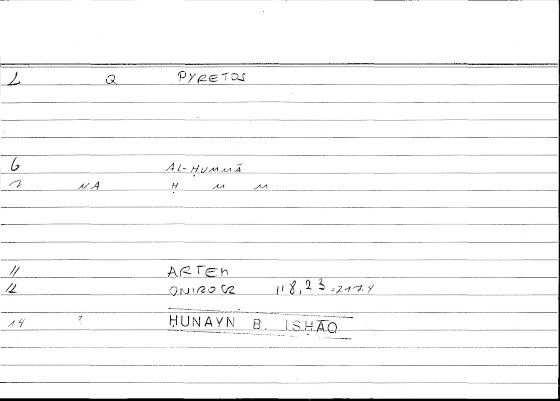 L Q PYRETOS
6 AL-ḤUMMĀ
7 NA Ḥ M M
11 ARTEM
12 ONIROCR 118,23 = 217.4
14 1 ḤUNAYN B. ISḤĀQ